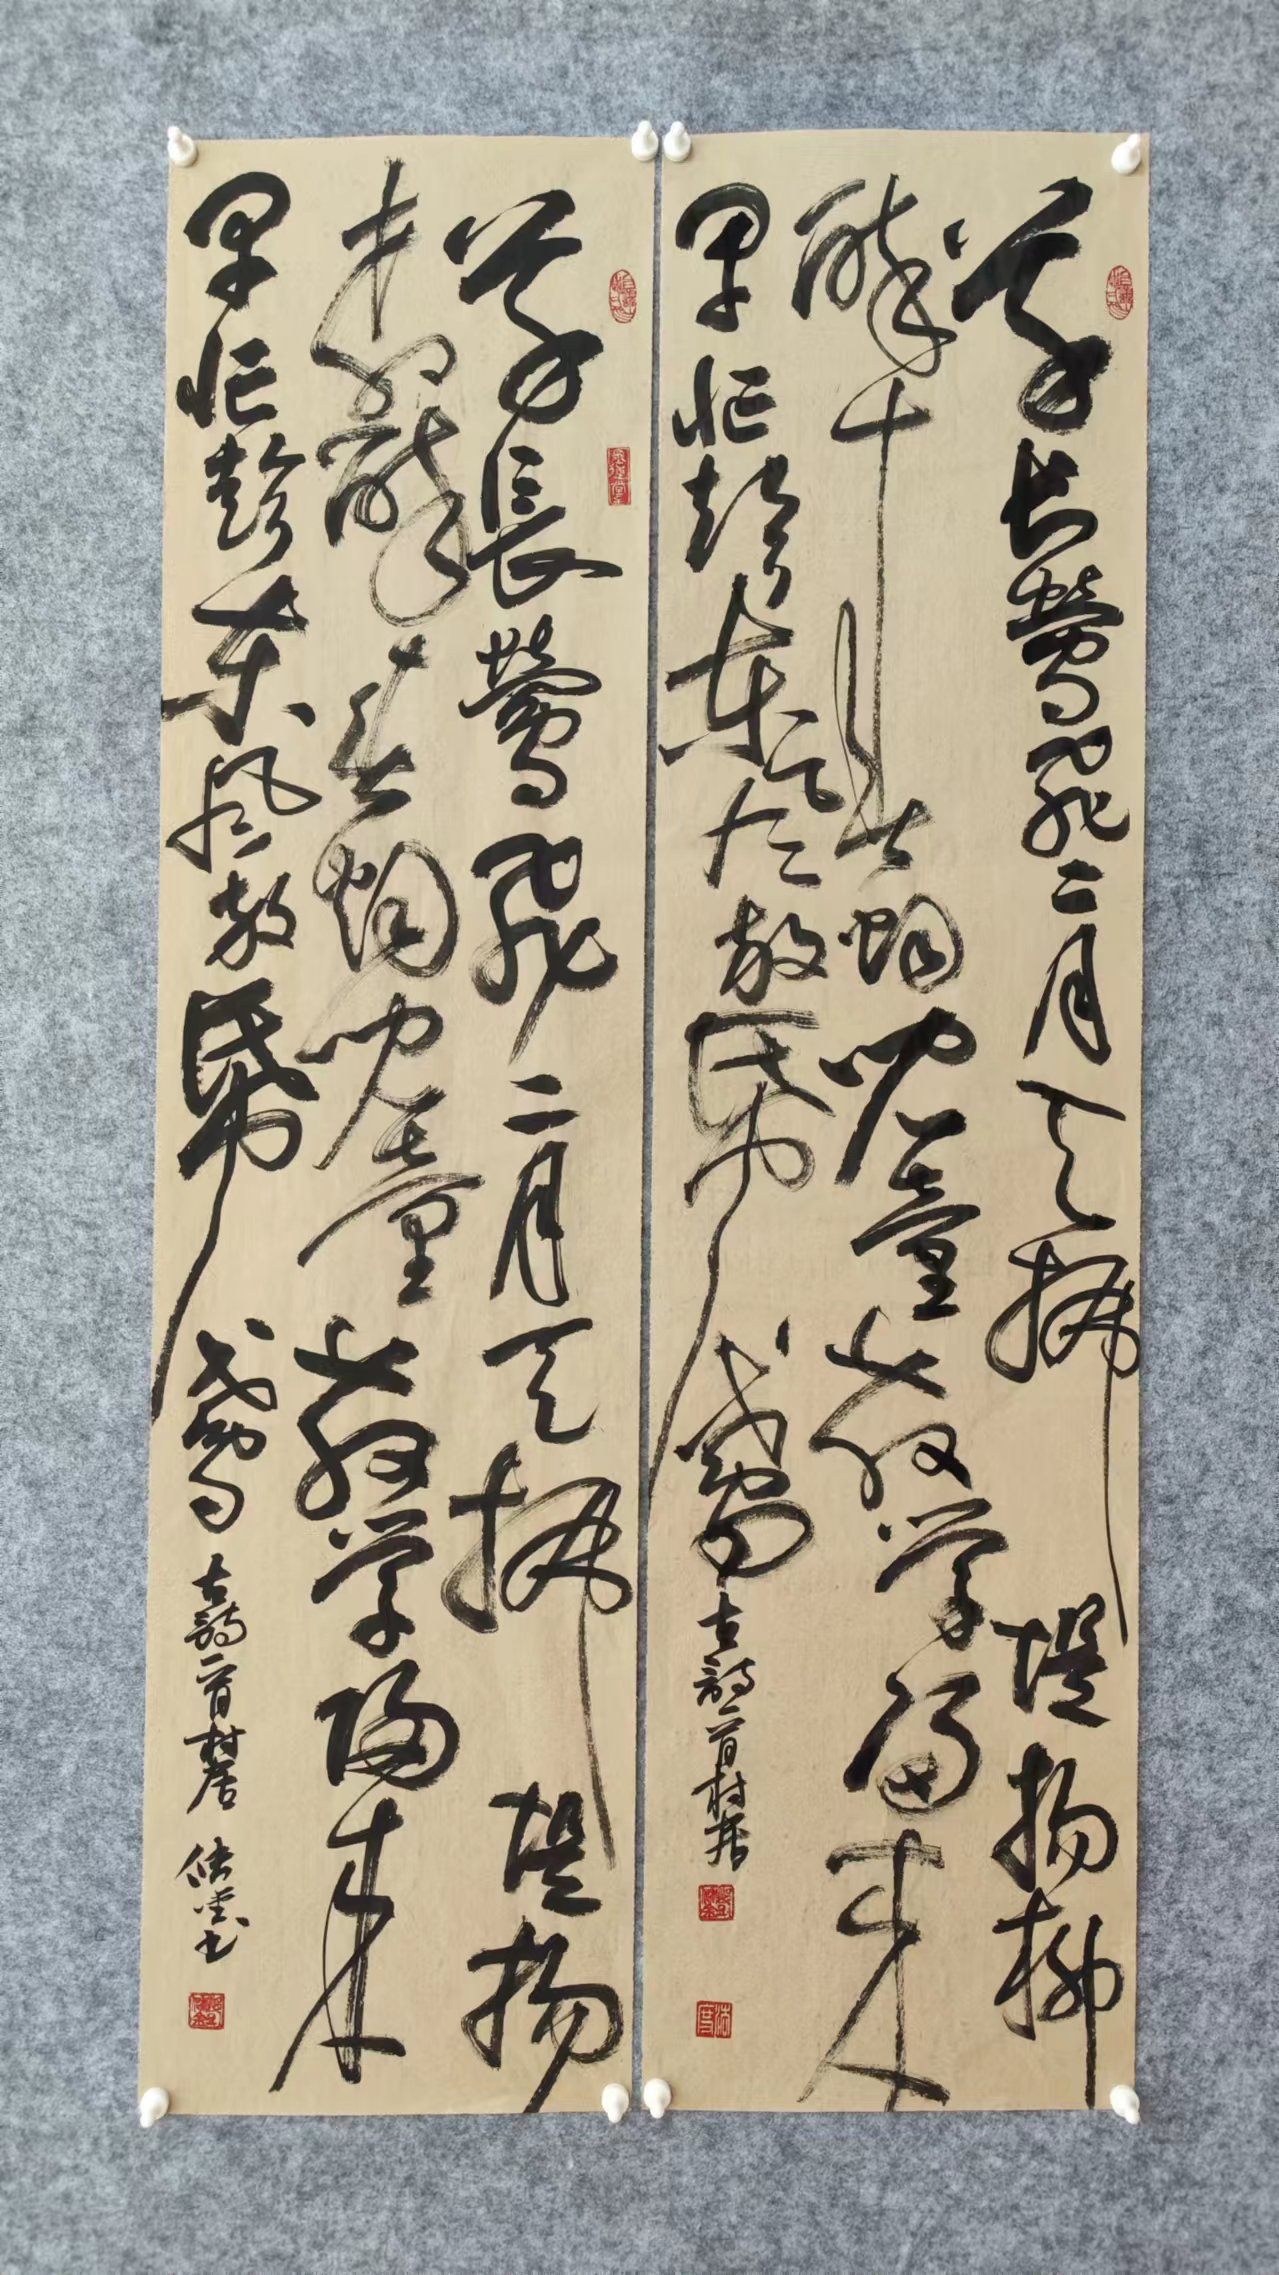 草长莺飞二月天拂堤杨柳
醉春烟儿童散学归来
早忙趁东风放帋鸢 古诗一首村居
草長莺飞二月天拂堤杨
柳醉春烟儿童散学归来
早忙趁东风放帋鸢 古詩一首村居 书